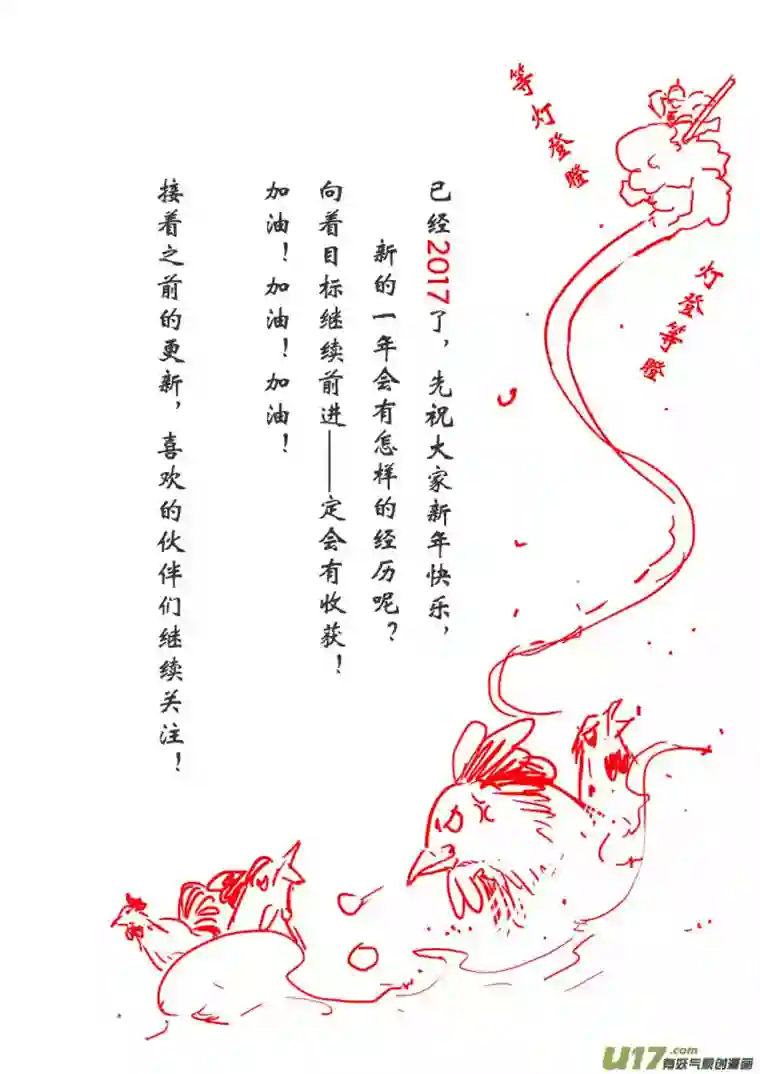 等灯登瞪
灯登等瞪
已经2017了，先祝大家新年快乐，
新的一年会有怎样的经历呢？
向着目标继续前进——定会有收获！
加油！加油！加油！
接着之前的更新，喜欢的伙伴们继续关注！
U17.com
有妖气原创漫画